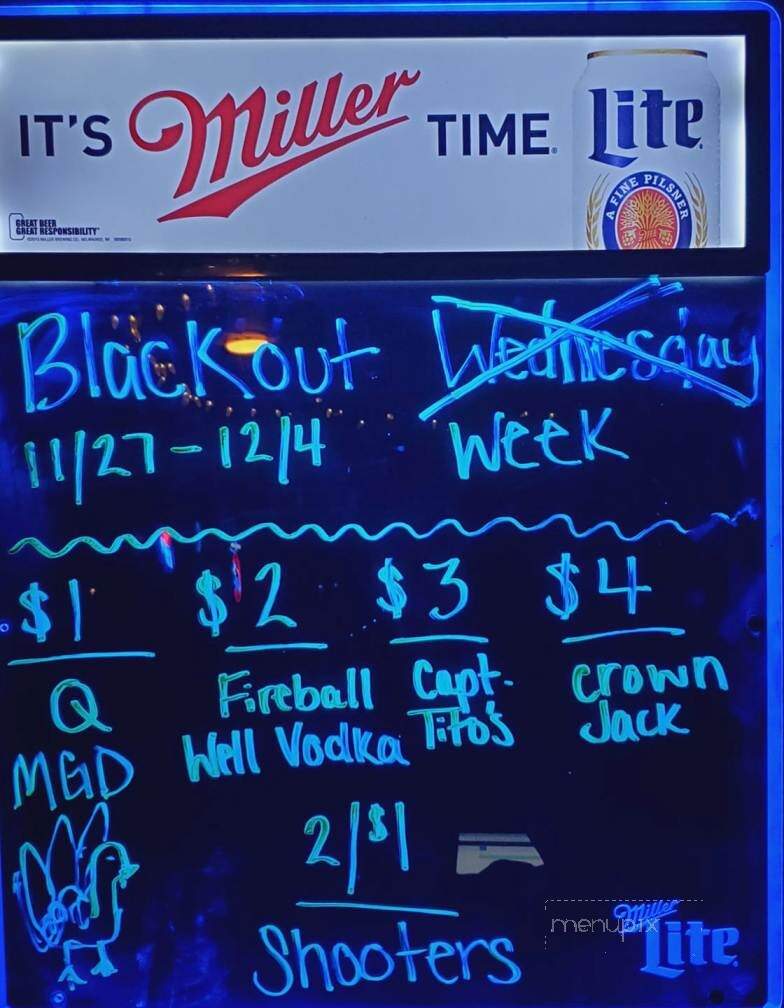 IT'S Miller TIME.
Lite
A FINE PILSNER
GREAT BEER
GREAT RESPONSIBILITY
Blackout Wednesday
11/27 - 12/4 Week
$1 $2 $3 $4
Q Fireball Capt. Crown
MGD Well Vodka Tito's Jack
2/$1
Shooters
menupix
Miller
Lite